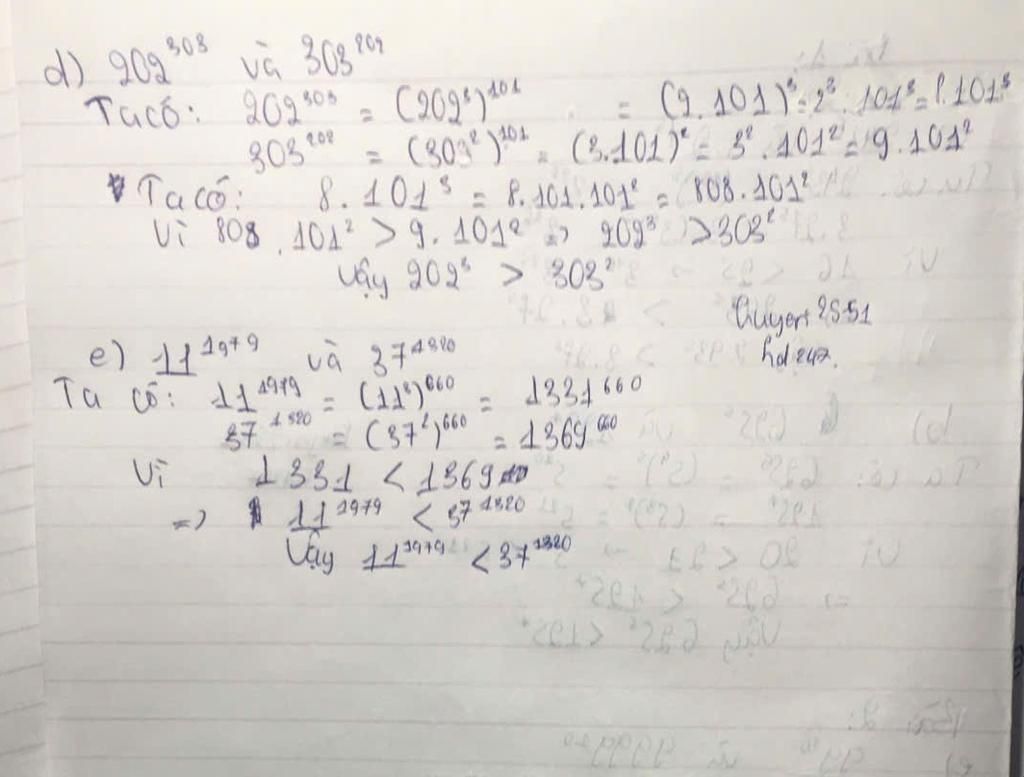 d) 202³⁰³ và 303²⁰²
Ta có: 202³⁰³ = (202³)¹⁰¹ = (2.101)³ = 2³.101³ = 8.101³
303²⁰² = (303²)¹⁰¹ = (3.101)² = 3².101² = 9.101²
Ta có: 8.101³ = 8.101.101² = 808.101²
Vì 808.101² > 9.101² => 202³ > 303²
Vậy 202³ > 303²
2S51
hd247.
e) 11¹⁹⁷⁹ và 37¹³²⁰
Ta có: 11¹⁹⁷⁹ = (11³)⁶⁶⁰ = 1331⁶⁶⁰
37¹³²⁰ = (37²)⁶⁶⁰ = 1369⁶⁶⁰
Vì 1331 < 1369
=> 11¹⁹⁷⁹ < 37¹³²⁰
Vậy 11¹⁹⁷⁹ < 37¹³²⁰